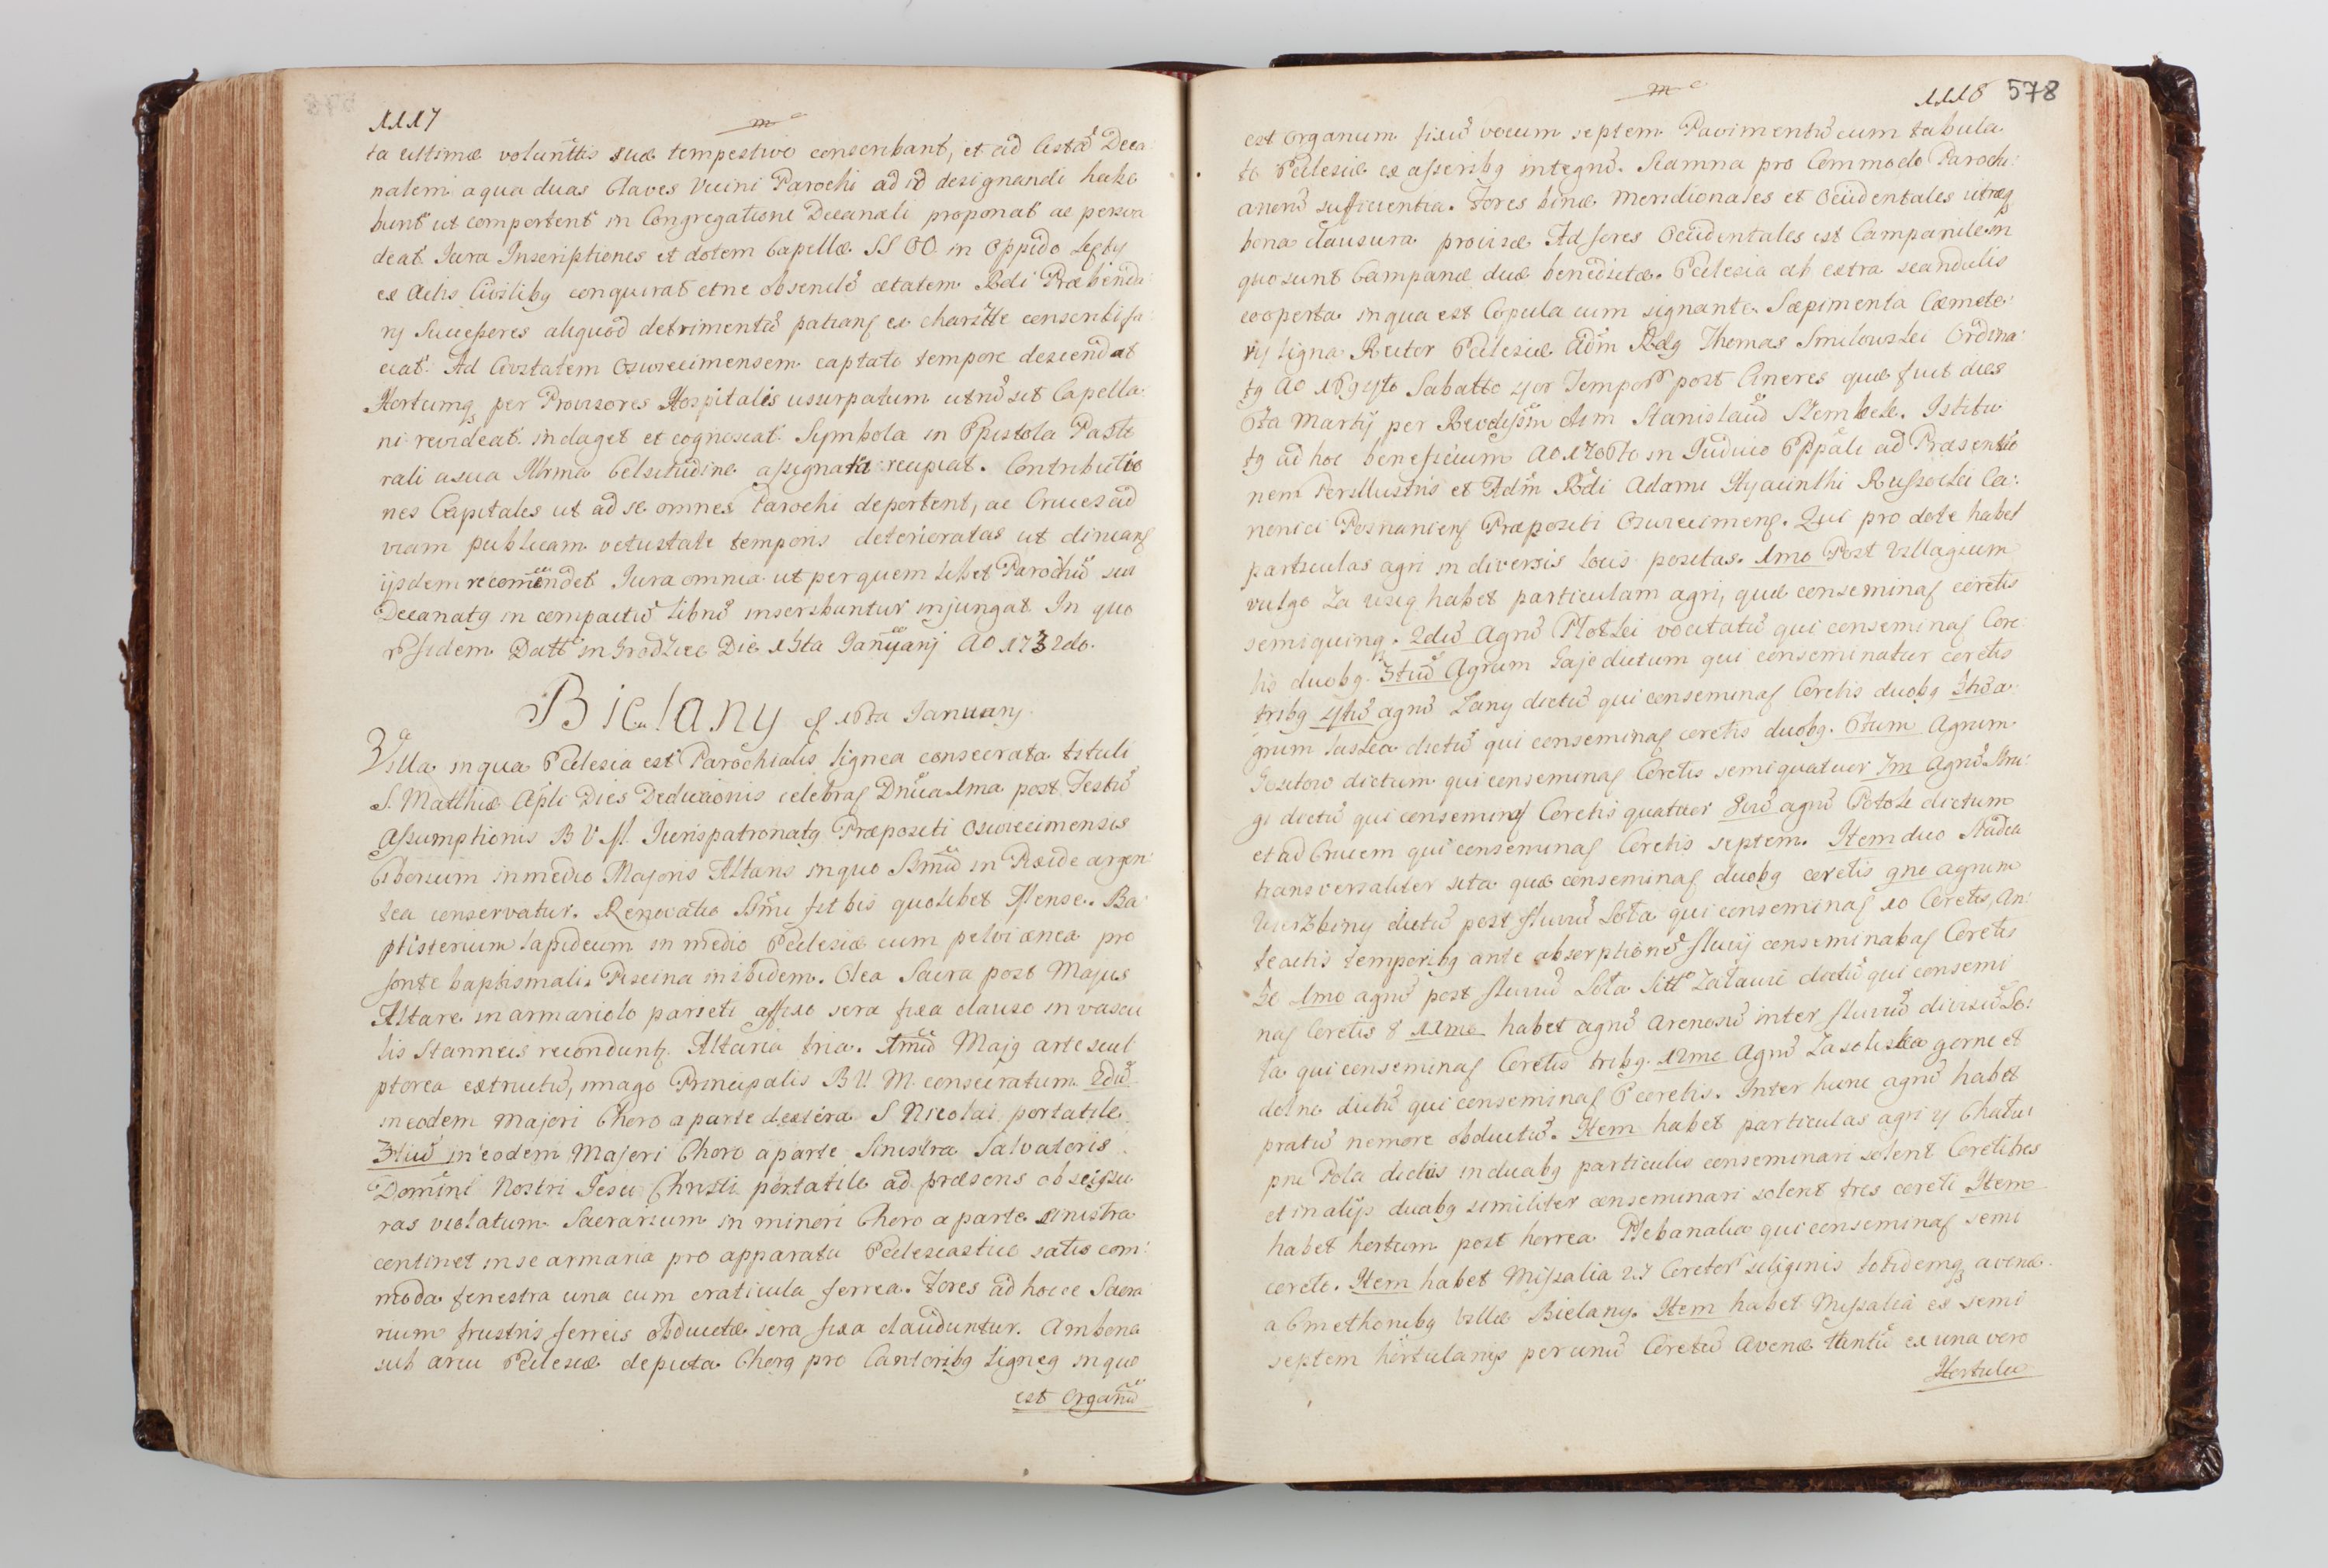 1117
m
ta ultimæ volunttis suæ tempestive conscribant, et ad Cistã Deca:
nalem a qua duas Claves Vicini Parochi ad id designandi habe
bunt ut comportent in Congregatione Decanali proponat ac persva
deat. Jura Inscriptiones et dotem Capellæ SS OO in Oppido
ex Actis Civilibq conquirat et ne ob senilẽ ætatem Rdi Præbenda:
rij Successores aliquod detrimentũ patians ex charitte conscribi fa:
ciat. Ad Civitatem Oswiecimensem captato tempore descendat
Hortumq per Provisores Hospitalis usurpatum utrũ sit Capella:
ni revideat indaget et cognoscat. Symbola in Epistola Pasto
rali a sua Illrma Celsitudine assignata recipiat. Contributio
nes Capitales ut ad se omnes Parochi deportent, ac Cruces ad
viam publicam vetustate temporis deterioratas ut
ijsdem recomendet Jura omnia ut per quem libet Parochũ sui
Decanatq in compactũ librũ inscribantur injungat. In quo
fidem Datt in Grodziec Die 15ta Januarij AO 1732do.
Bielany 16ta January
Villa in qua Ecclesia est Parochialis lignea consecrata tituli
S. Matthiæ Apli Dies Dedicaonis celebras Dnica 1ma post Festũ
Assumptionis B V M. Jurispatronatq Præpositi Oswiecimensis
Ciborium in medio Majoris Altaris in quo SSmũ in Pixide argen:
tea conservatur. Renovatio SSmi fit bis quolibet Mense. Ba:
ptisterium lapideum in medio Ecclesiæ cum pelvi ænea pro
fonte baptismali. Piscina inibidem. Olea Sacra post Majus
Altare in armariolo parieti affixo sera fixa clauso in vascu
lis Stanneis recondunt. Altaria tria. 1mũ Majq arte scul
ptorea extructũ, imago Principalis B V. M. consecratum. 2dũ
in eodem Majori Choro a parte dextera S Nicolai portatile.
3tiũ in eodem Majori Choro a parte Sinistra Salvatoris
Domini Nostri Jesu Christi portatile ad præsens ob scissu
ras violatum. Sacrarium in minori Choro a parte sinistra
continet in se armaria pro apparatu Ecclesiastico satis com:
moda fenestra una cum craticula ferrea. Fores ad hocce Sacra
rium frustris ferreis obductæ sera fixa clauduntur. Ambona
sub arcu Ecclesiæ depicta Chorq pro Cantoribq ligneq in quo
est Organũ
m
1118 578
est Organum fixũ vocum septem Pavimentũ cum tabula
to Ecclesiæ ex asseribq integrũ. Scamna pro Commodo Parochi:
anorũ sufficientia. Fores binæ Meridionales et Occidentales utræq
bona clausura provisæ Ad fores Occidentales est Campanile in
quo sunt Campanæ duæ benedictæ. Ecclesia ab extra scandulis
cooperta in qua est Copula cum signante. Sæpimenta Cæmete:
rij ligna Rector Ecclesiæ Adm Rdq Thomas Smilowski Ordina:
tq AO 1694to Sabatto 4or Tempor post Cineres quæ fuit dies
6ta Martij per Revdissm olim Stanislaũ Szembek. Institu
tq ad hoc beneficium AO in Judicio Eppali ad Præsentio
nem Perillustris et Adm Rdi Adami Hyacinthi Russocki Ca:
nonici Posnaniens Præpositi Oswiecimens. Qui pro dote habet
particulas agri in diversis locis positas. 1mo Post Villagium
vulgo Za wsią habet particulam agri, quæ conseminas coretis
semiquinq. 2dũ Agrũ Plotki vocitatũ qui conseminas Core:
tis duobq. 3tiũ Agrum Gaje dictum qui conseminatur coretis
tribq 4tũ agrũ Zany dictũ qui conseminas Coretis duobq 5tũ a:
grum laska dictũ qui conseminas coretis duobq. 6tum Agrum
dictum qui conseminas Coretis semiquatuor 7m Agrũ
gi dictũ qui conseminas Coretis quatuor 8vũ agrũ Potok dictum
et ad Crucem qui conseminas Coretis septem. Item duo Stadia
transversaliter sita quæ conseminas duobq coretis 9no agrum
Wierzbiny dictũ post fluviũ Sola qui conseminas 10 Coretis, an:
teactis temporibq ante absorptionẽ fluvij conseminabas Coretis
30 1mo agrũ post fluviũ Sola Zatawie dictũ qui consemi
nas Coretis 8 11mo habet agrũ arenosũ inter fluviũ divisũ So:
la qui conseminas Coretis tribq. 12mo Agrũ Zasolska gorne et
dolne dictũ qui conseminas coretis. Inter hunc agrũ habet
pratũ nemore obductũ. Item habet particulas agri 4 Chalu
pne Pola dictis in duabq particulis conseminari solent Coreti tres
et in alijs duabq similiter conseminari solent tres coreti Item
habet hortum post horrea Plebanalia qui conseminas semi
coreto. Item habet Missalia 27 Coretor siliginis totidemq avenæ
a Cmethonibq Villæ Bielany. Item habet Missalia ex semi
septem hortulanijs per unũ Coretũ Avenæ tantũ ex una vero
Hortula